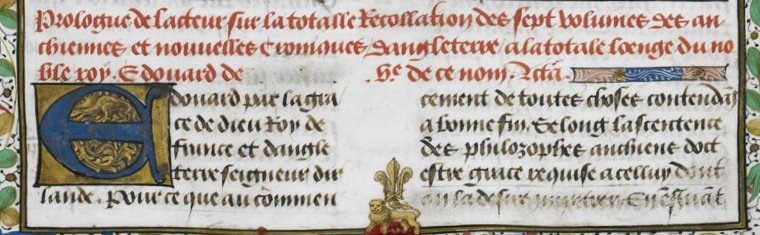 Prologue de lacteur sur la totalle Recollation des sept volumes des an
chiennes et nouuelles Croniques dangleterre a la totale loenge du no
ble roy. Edouard de de ce nom. Acta.
Edouard par la gra
ce de dieu Roy de
france et dangle
terre seigneur dir
lande. Pour ce que au cõmen
cement de toutes choses contendãs
a bonne fin. Selong la sentence
des philozophes anchiens doit
estre grace requise a celluy dont
on la desire